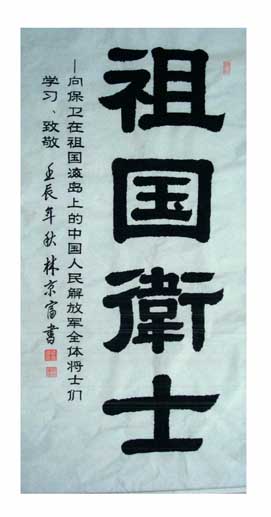 祖国衛士
——向保卫在祖国海岛上的中国人民解放军全体将士们
学习、致敬 壬辰年秋 林京富書